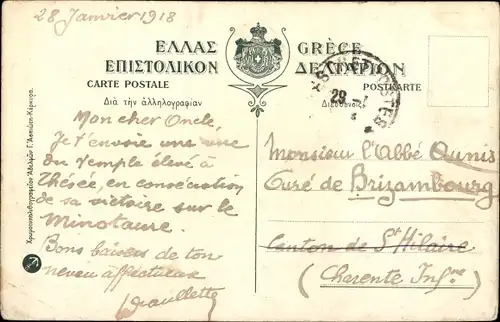 28 Janvier 1918
ΕΛΛΑΣ GRÈCE
ΕΠΙΣΤΟΛΙΚΟΝ ΔΕΛΤΑΡΙΟΝ
CARTE POSTALE POSTKARTE
Διὰ τὴν ἀλληλογραφίαν
Διεύθυνσις
TRÉSOR ET POSTES
29
Mon cher Oncle,
Je t'envoie une vue
du temple élevé à
Thésée, en consécration
de sa victoire sur le
Minotaure.
Bons baisers de ton
neveu affectueux
Monsieur l'Abbé Aunis
Curé de Brizambourg
Canton de St Hilaire
(Charente Infre)
Χρωμολιθογραφεῖον Ἀδελφῶν Γ. Ἀσπιώτη-Κέρκυρα.